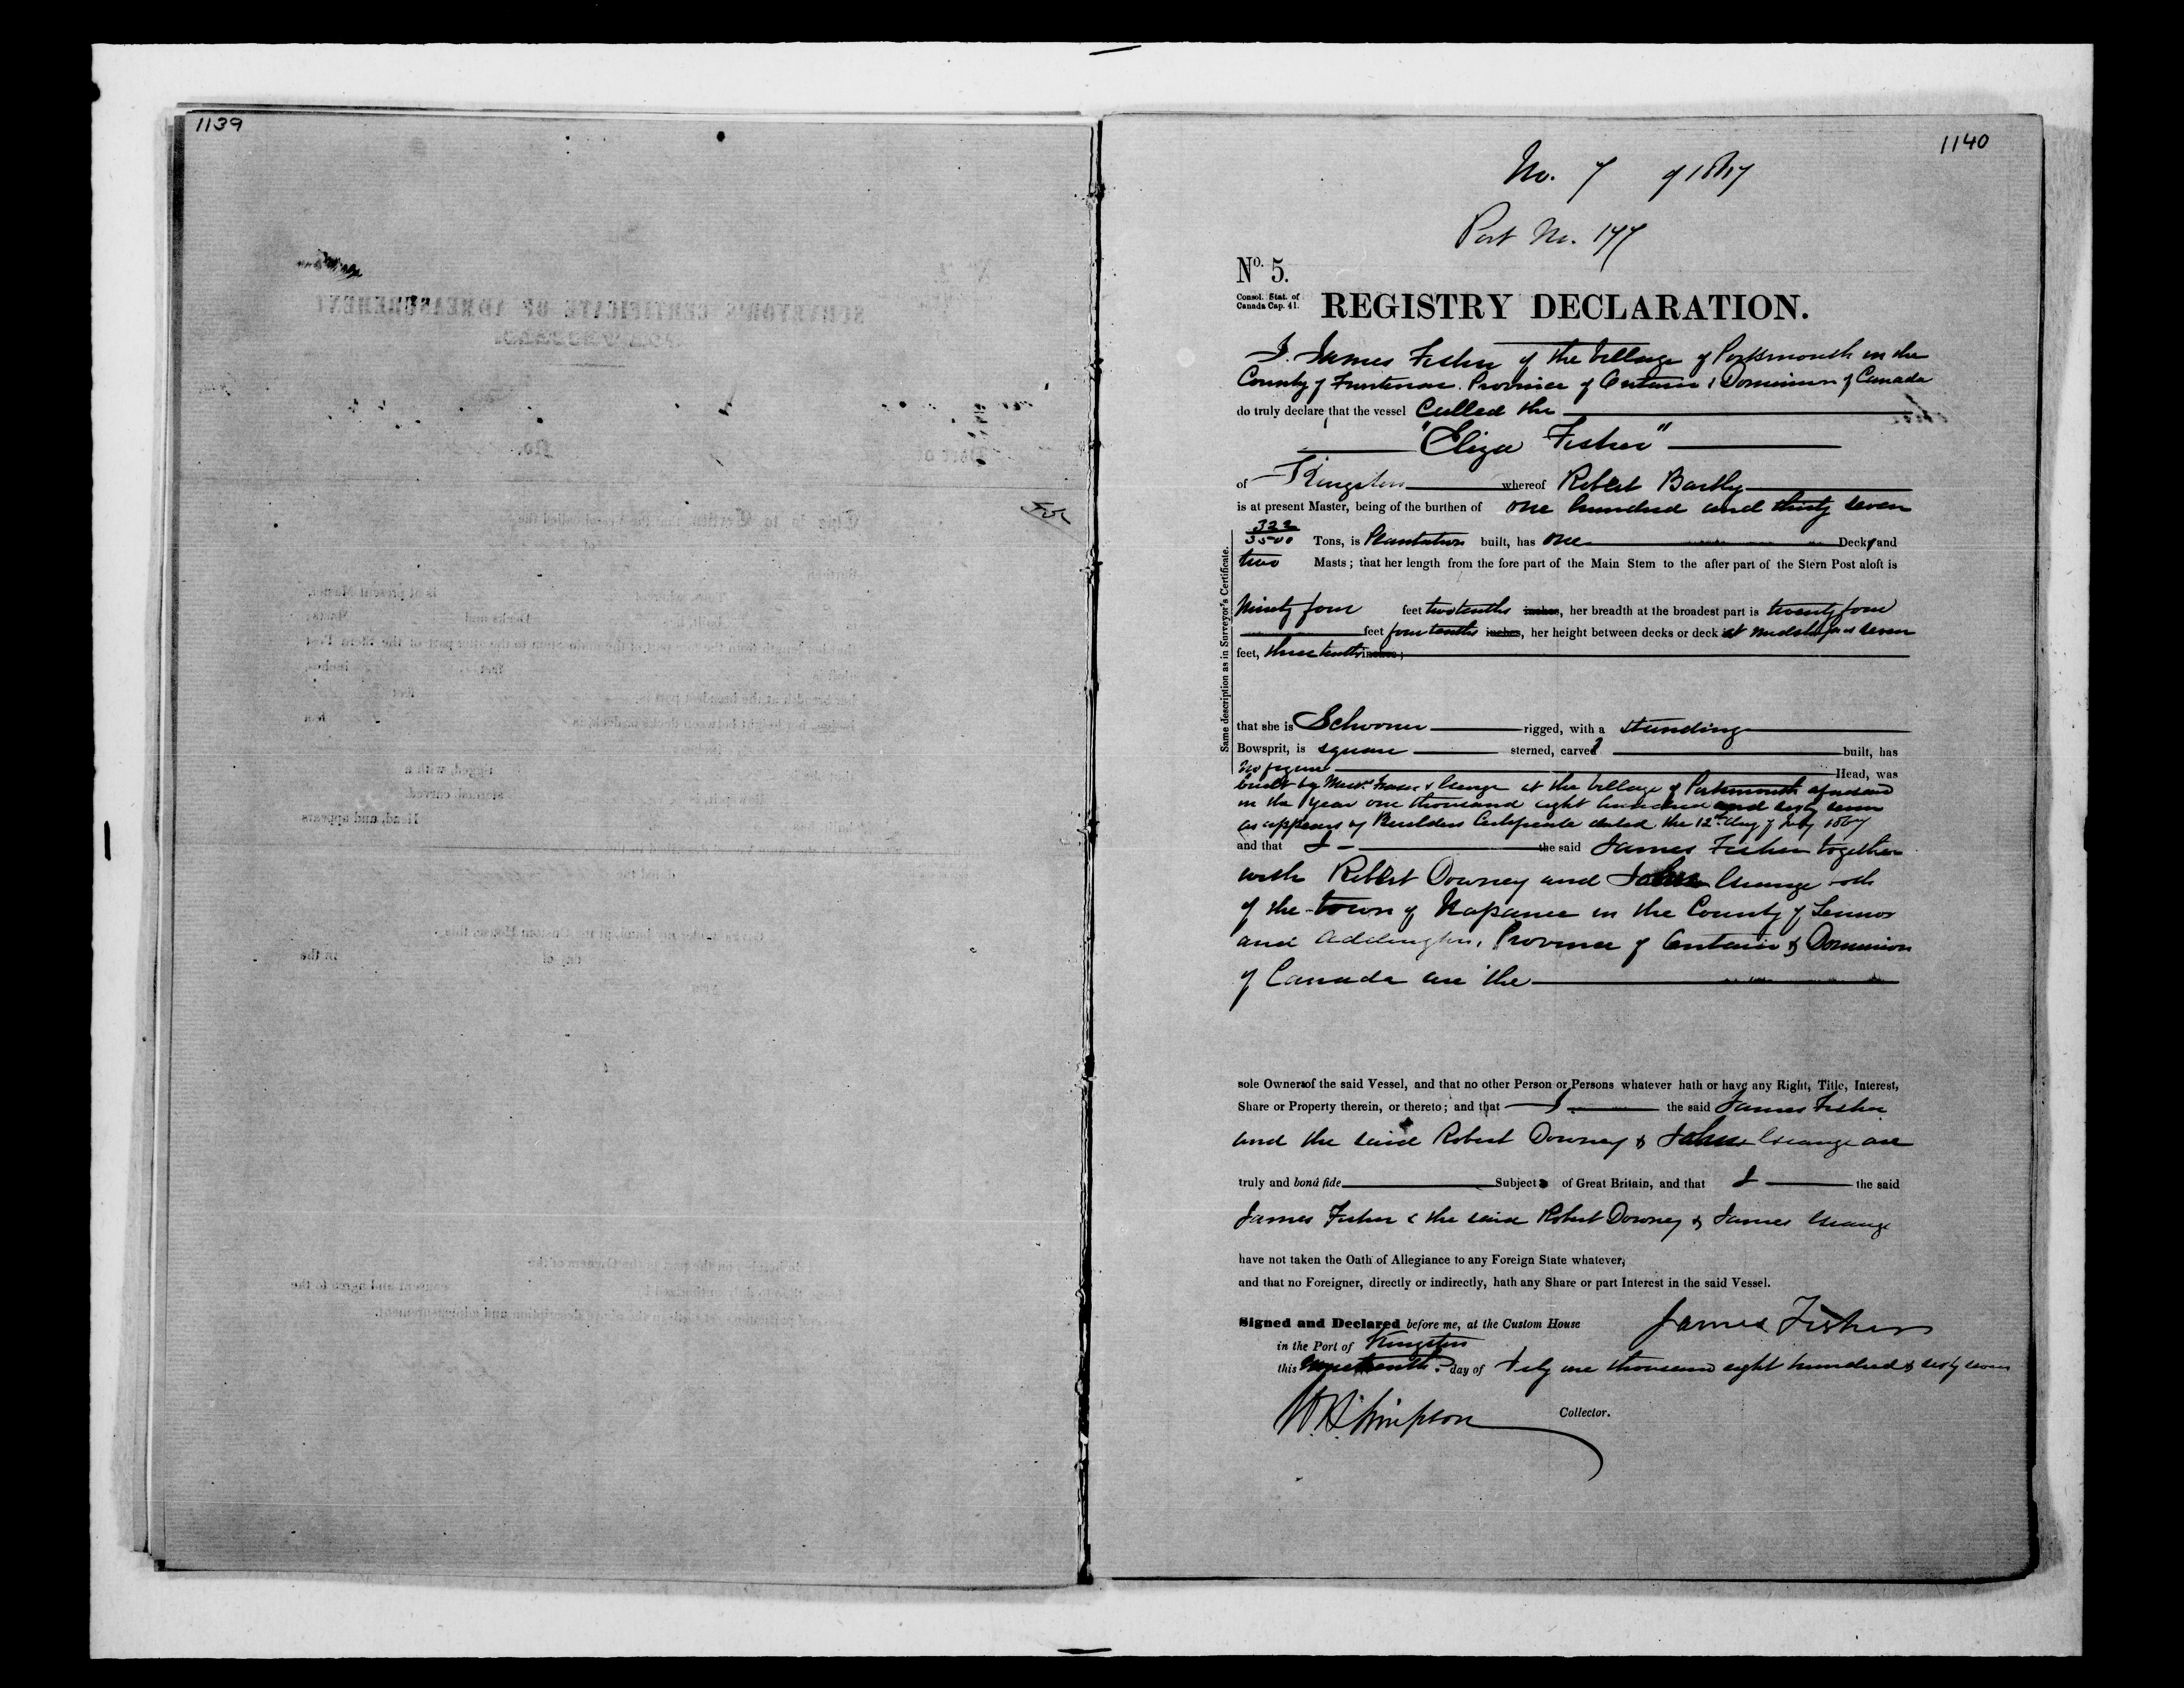 1139
1140
No. 7 of 1867
Port No. 177
No. 5.
Consol. Stat. of
Canada Cap. 41.
REGISTRY DECLARATION.
I. James Fisher of the Village of Portsmouth in the
County of Frontenac. Province of Ontario & Dominion of Canada
do truly declare, that the vessel Called the
"Eliza Fisher"
of Kingston whereof Robert Bartly
is at present Master, being of the burthen of one hundred and thirty seven
322
3500 Tons, is Plantation built, has one Deck and
two Masts; that her length from the fore part of the Main Stem to the after part of the Stern Post aloft is
Ninety four feet two tenths inches, her breadth at the broadest part is twenty four
feet four tenths inches, her height between decks or deck at Midships is seven
feet, three tenths inches;
Same description as in Surveyor's Certificate.
that she is Schooner rigged, with a standing
Bowsprit, is square sterned, carvel built, has
no figure Head, was
built by Messrs. & at the Village of Portsmouth aforesaid
in the year one thousand eight hundred and sixty seven
as appears by Builders Certificate dated the 12th day of July 1867
and that I the said James Fisher together
with Robert Downey and both
of the town of Napanee in the County of Lennox
and Addington, Province of Ontario & Dominion
of Canada are the
sole Owners of the said Vessel, and that no other Person or Persons whatever hath or have any Right, Title, Interest,
Share or Property therein, or thereto; and that I the said James Fisher
and the said Robert Downey & are
truly and bonâ fide Subjects of Great Britain, and that I the said
James Fisher & the said Robert Downey & James
have not taken the Oath of Allegiance to any Foreign State whatever,
and that no Foreigner, directly or indirectly, hath any Share or part Interest in the said Vessel.
Signed and Declared before me, at the Custom House James Fisher
in the Port of Kingston
this Nineteenth day of July one thousand eight hundred & sixty seven
W. Simpson Collector.